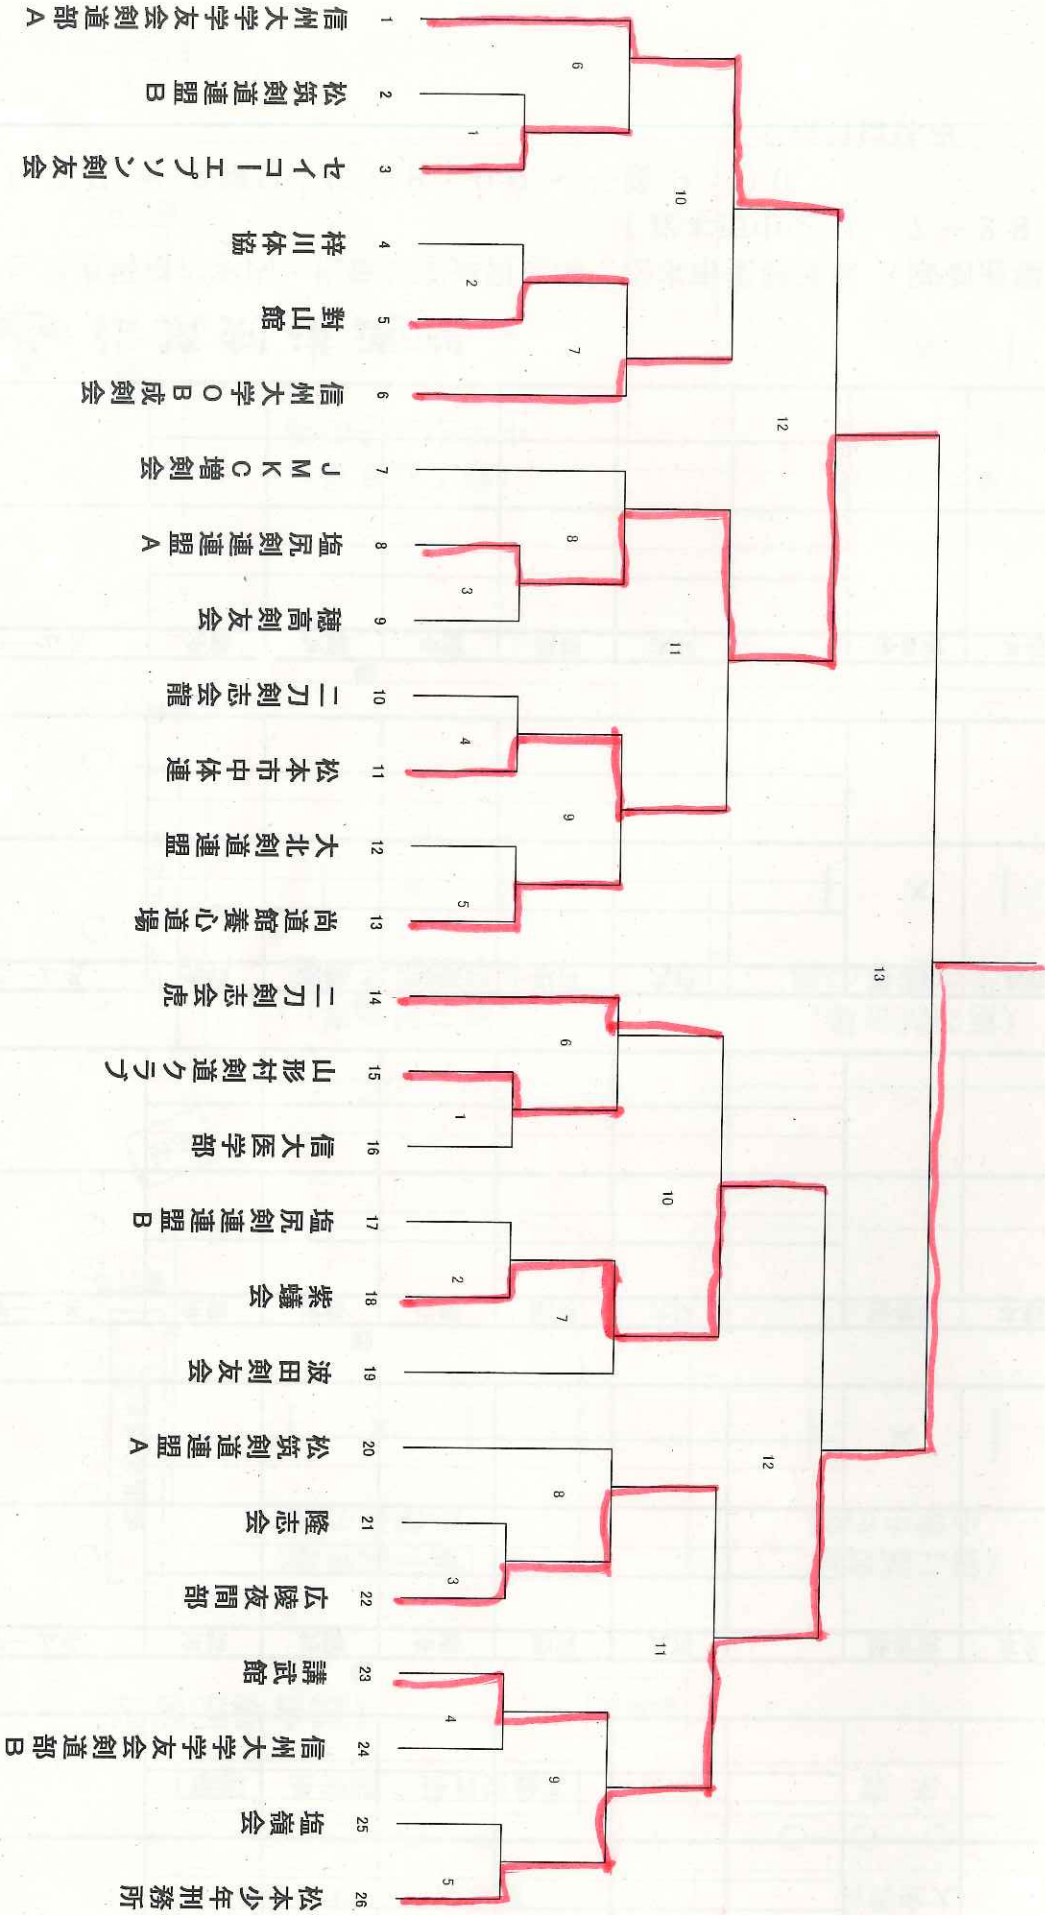 1 信州大学学友会剣道部A
2 松筑剣道連盟B
3 セイコーエプソン剣友会
4 梓川体協
5 對山館
6 信州大学OB成剣会
7 JMKC増剣会
8 塩尻剣連連盟A
9 穂高剣友会
10 二刀剣志会龍
11 松本市中体連
12 大北剣道連盟
13 尚道館養心道場
14 二刀剣志会虎
15 山形村剣道クラブ
16 信大医学部
17 塩尻剣連連盟B
18 紫蟻会
19 波田剣友会
20 松筑剣道連盟A
21 隆志会
22 広陵夜間部
23 講武館
24 信州大学学友会剣道部B
25 塩嶺会
26 松本少年刑務所
1
2
3
4
5
1
2
3
4
5
6
7
8
9
6
7
8
9
10
11
10
11
12
12
13